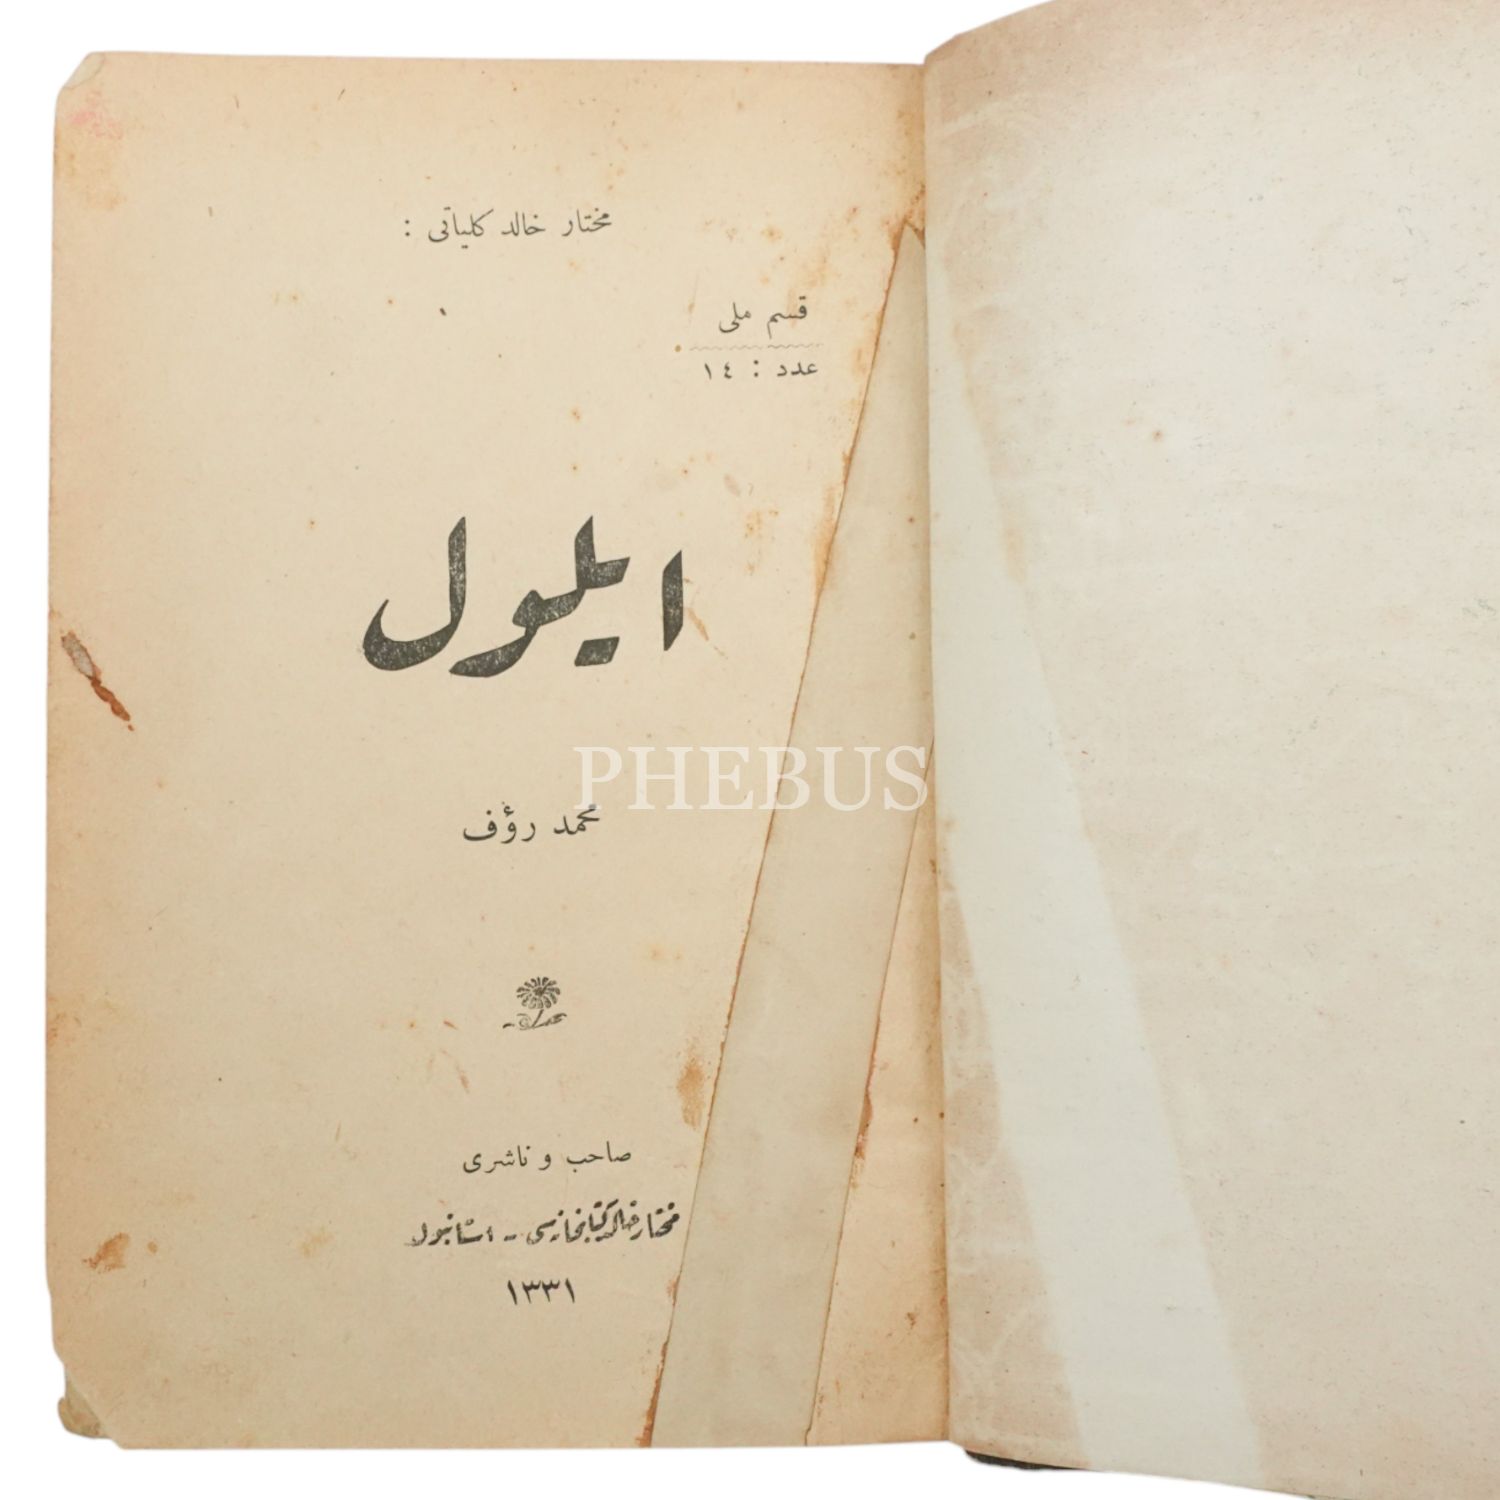 مختار خالد كلياتی :
قسم ملی
عدد : ١٤
ايلول
PHEBUS
محمد رؤف
صاحب و ناشری
مختار خالد كتابخانه‌سی - استانبول
١٣٣١